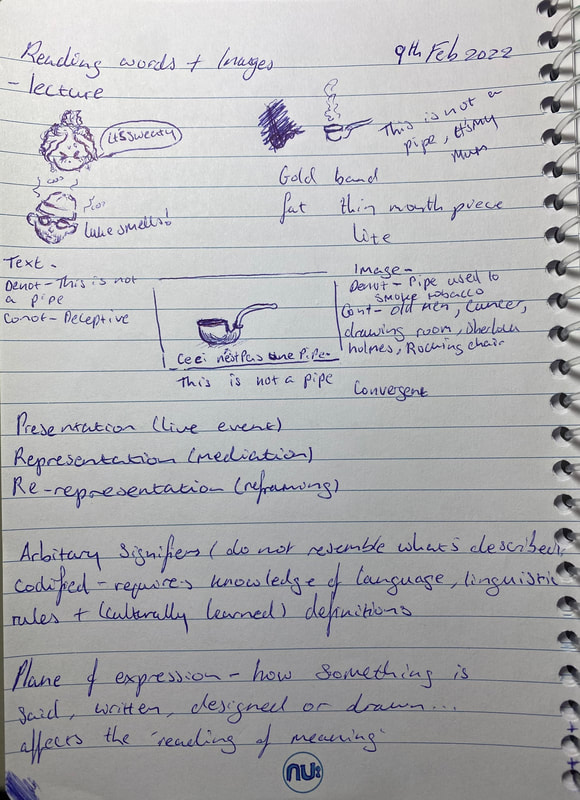 Reading words + Images
9th Feb 2022
- lecture
It's sweaty
This is not a
pipe, it's my
mum
Gold band
fat thin mouth piece
lite
luke smells!
Text -
Denot - This is not
a pipe
Conot - Deceptive
Image -
Denot - Pipe used to
smoke tobacco
Cont - old men, Cancer,
drawing room, Sherlock
holmes, Rocking chair
Ceci n'est Pas une Pipe.
This is not a pipe
Convergent
Presentation (live event)
Representation (mediation)
Re-representation (reframing)
Arbitary Signifiers (do not resemble what's described,
codified - requires knowledge of language, linguistic
rules + (culturally learned) definitions
Plane of expression - how something is
said, written, designed or drawn...
affects the 'reading of meaning'
nu: